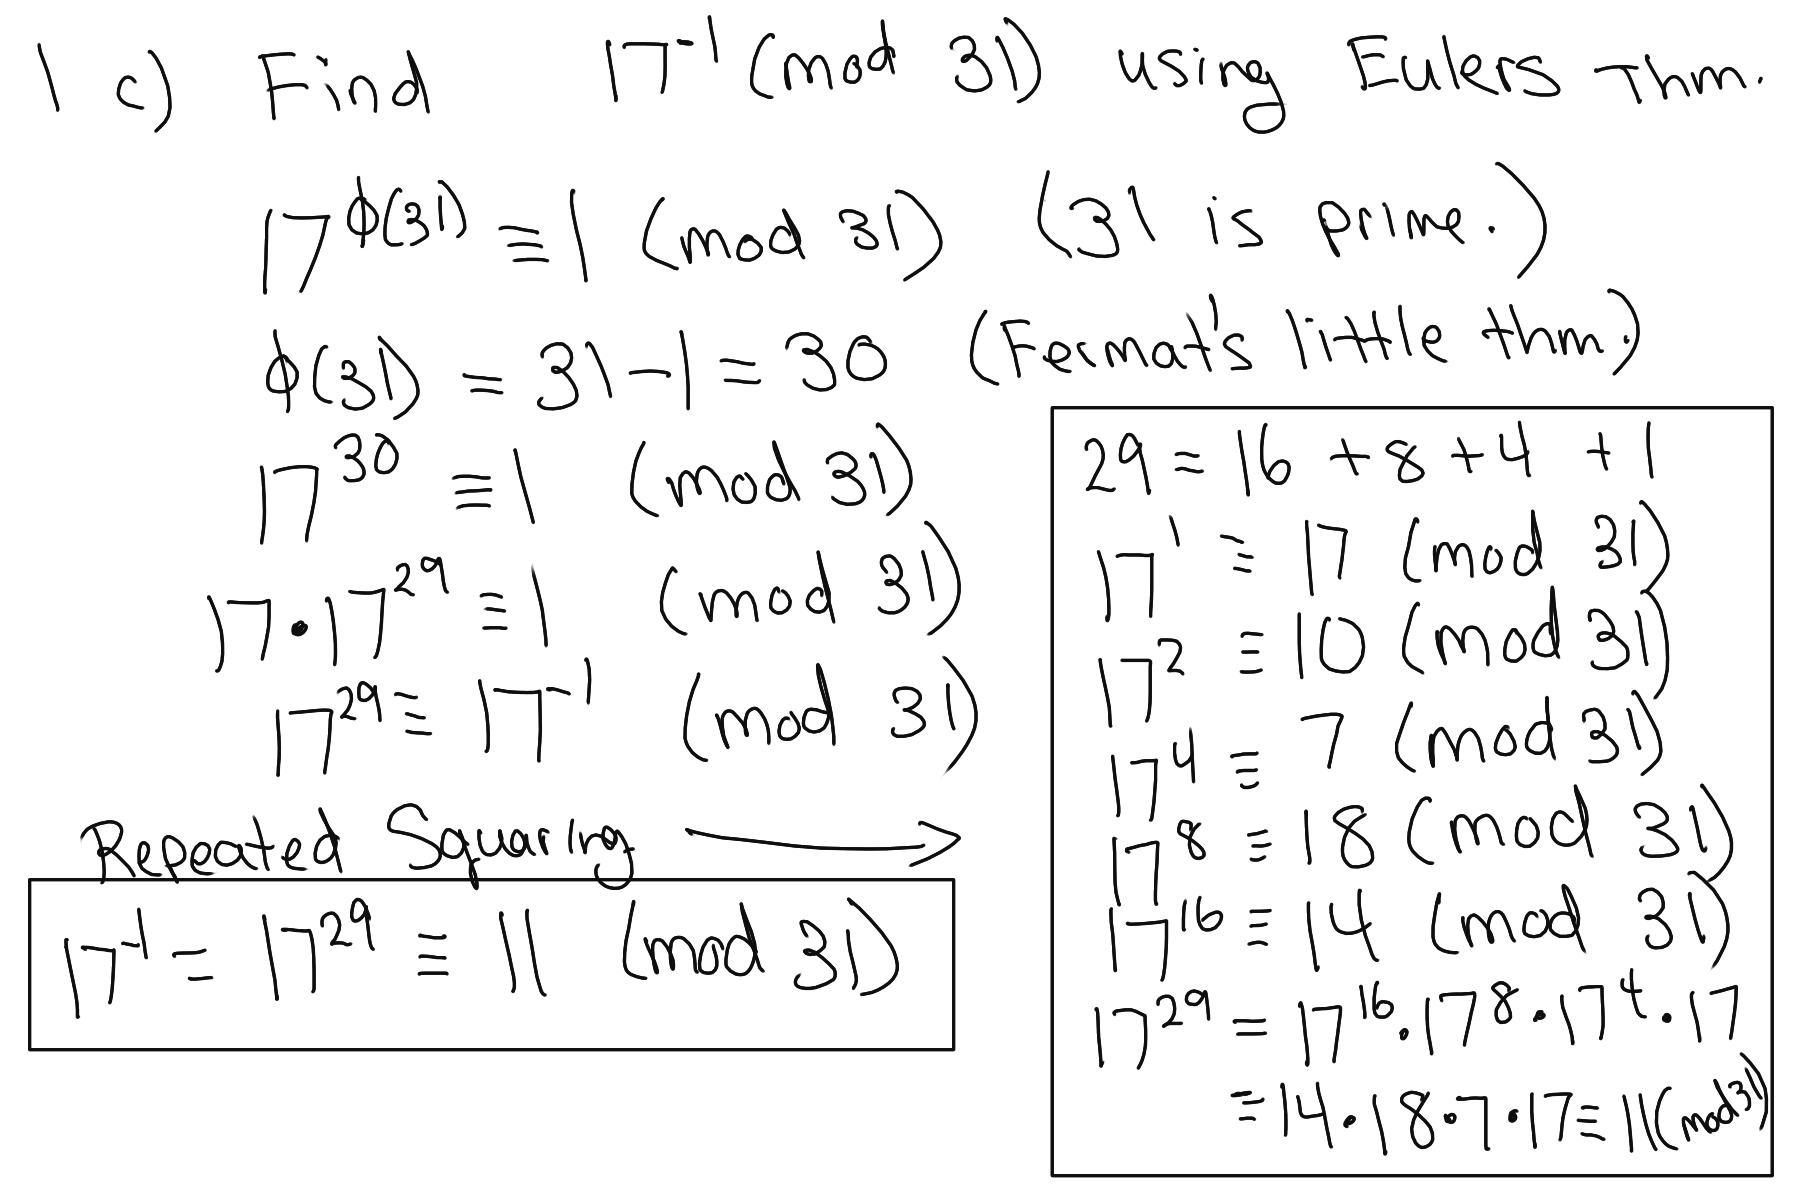 1 c) Find 17⁻¹ (mod 31) using Eulers Thm.
17^ϕ(31) ≡ 1 (mod 31) (31 is prime.)
ϕ(31) = 31 - 1 = 30 (Fermat's little thm.)
17³⁰ ≡ 1 (mod 31)
17 • 17²⁹ ≡ 1 (mod 31)
17²⁹ ≡ 17⁻¹ (mod 31)
Repeated Squaring →
17⁻¹ = 17²⁹ ≡ 11 (mod 31)
29 = 16 + 8 + 4 + 1
17¹ ≡ 17 (mod 31)
17² ≡ 10 (mod 31)
17⁴ ≡ 7 (mod 31)
17⁸ ≡ 18 (mod 31)
17¹⁶ ≡ 14 (mod 31)
17²⁹ = 17¹⁶ • 17⁸ • 17⁴ • 17
≡ 14 • 18 • 7 • 17 ≡ 11 (mod 31)